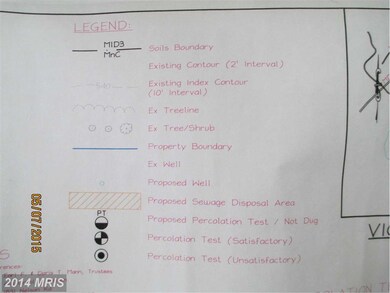 LEGEND:
MID3
MnC
Soils Boundary
Existing Contour (2' Interval)
Existing Index Contour
(10' Interval)
Ex Treeline
Ex Tree/Shrub
Property Boundary
Ex Well
Proposed Well
Proposed Sewage Disposal Area
PT
Proposed Percolation Test / Not Dug
Percolation Test (Satisfactory)
Percolation Test (Unsatisfactory)
05/07/2015
2014 MRIS